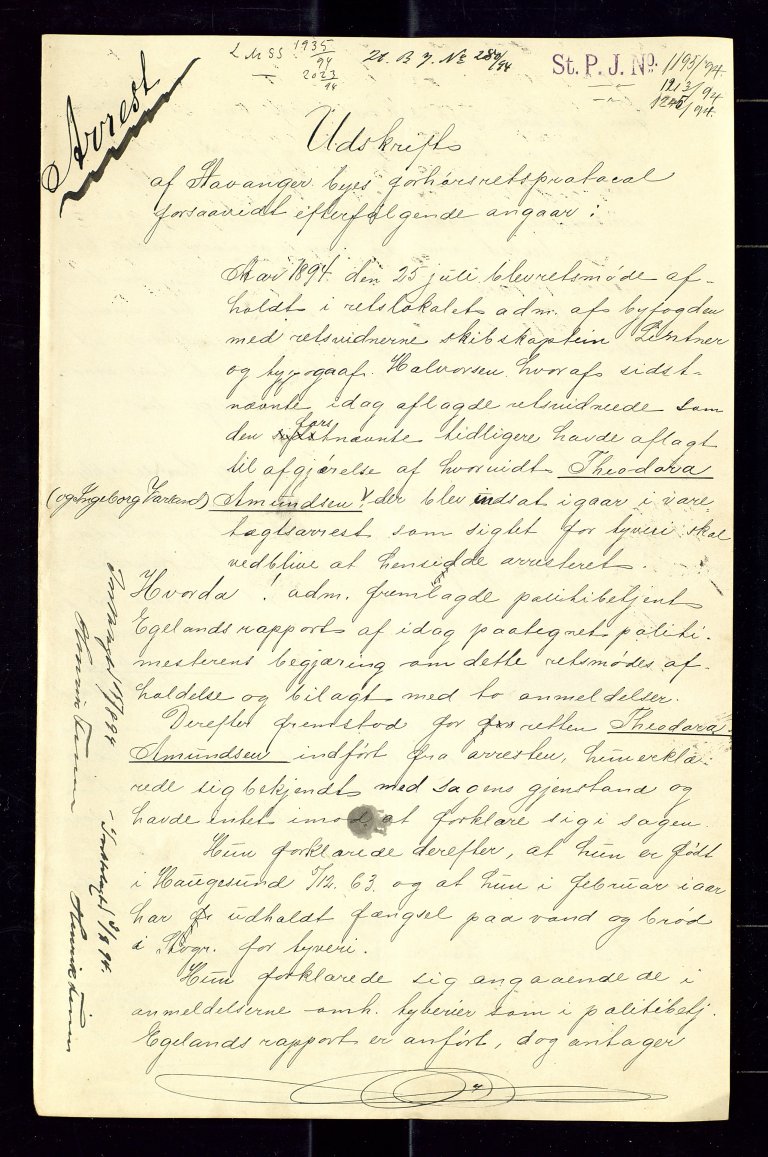 Arrest
L M SS 1935/94
2023/94
St. B J. No 280/94
St. P. J. No. 1195/94.
1213/94
1245/94.
Udskrift
af Stavanger byes forhørsretsprotocol
forsaavidt efterfølgende angaar:
Aar 1894 den 25 juli blev retsmøde af-
holdt i retslokalet adm. af byfogden
med retsvidnerne skibskaptein Lintner
og typograf Halvorsen hvoraf sidst-
nævnte idag aflagde retsvidneede som
den førstnævnte tidligere havde aflagt
til afgjørelse af hvorvidt Theodora
(og Ingeborg Varland)
Amundsen der blev indsat igaar i vare
tægtsarrest som sigtet for tyveri skal
vedblive at hensidde arresteret.
Hvorda! adm. fremlagde politibetjent
Egelands rapport af idag paategnet politi-
mesterens begjæring om dette retsmødes af-
holdelse og bilagt med to anmeldelser.
Derefter fremstod for retten Theodora
Amundsen indført fra arresten, hun erklæ-
rede sig bekjendt med sagens gjenstand og
havde intet imod at forklare sig i sagen.
Hun forklarede derefter, at hun er født
i Haugesund 5/12. 63. og at hun i februar iaar
har udholdt fængsel paa vand og brød
i Stvgr. for tyveri.
Hun forklarede sig angaaende de i
anmeldelserne omh. tyverier som i politibetj.
Egelands rapport er anført, dog antager